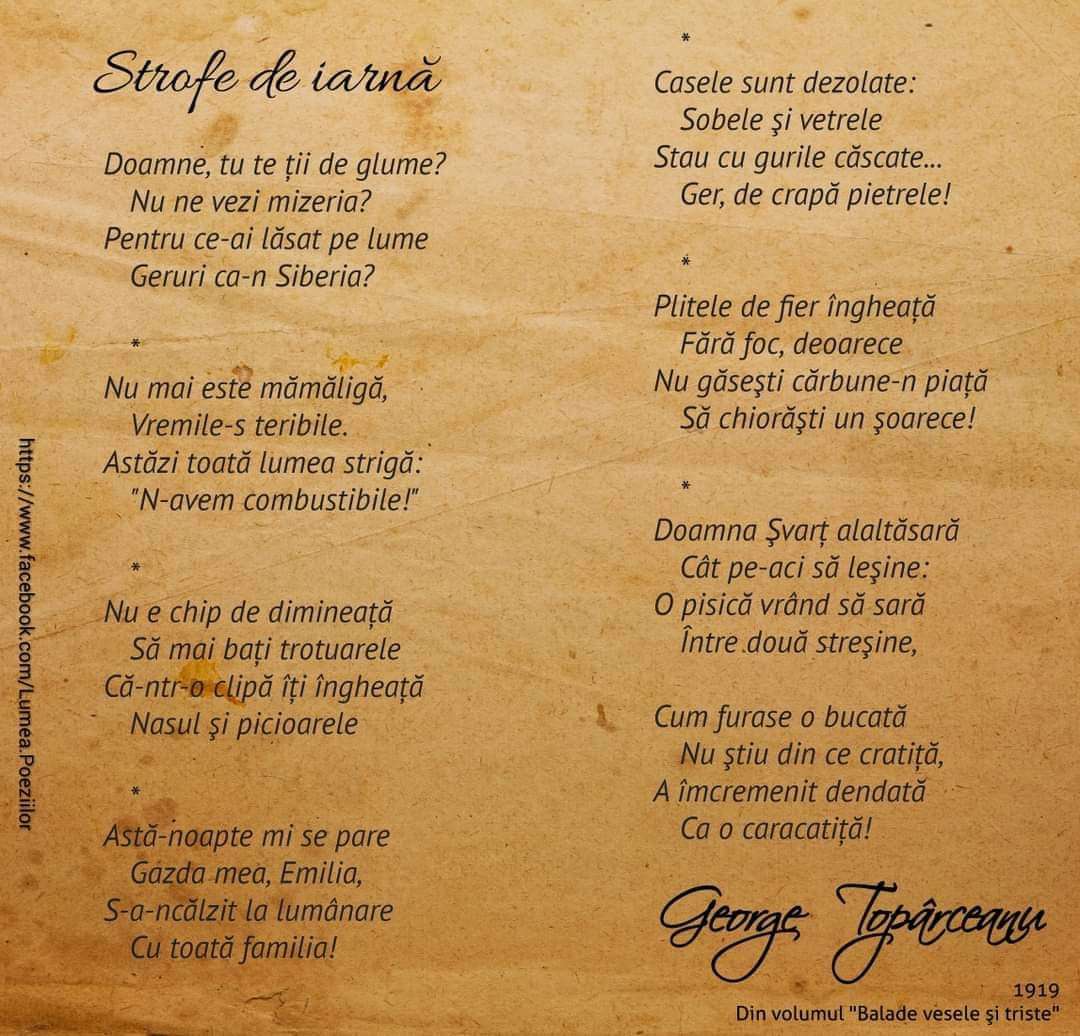 Strofe de iarnă
Doamne, tu te ţii de glume?
Nu ne vezi mizeria?
Pentru ce-ai lăsat pe lume
Geruri ca-n Siberia?
*
Nu mai este mămăligă,
Vremile-s teribile.
Astăzi toată lumea strigă:
"N-avem combustibile!"
*
Nu e chip de dimineaţă
Să mai baţi trotuarele
Că-ntr-o clipă îţi îngheaţă
Nasul şi picioarele
*
Astă-noapte mi se pare
Gazda mea, Emilia,
S-a-ncălzit la lumânare
Cu toată familia!
*
Casele sunt dezolate:
Sobele şi vetrele
Stau cu gurile căscate...
Ger, de crapă pietrele!
*
Plitele de fier îngheaţă
Fără foc, deoarece
Nu găseşti cărbune-n piaţă
Să chiorăşti un şoarece!
*
Doamna Şvarţ alaltăsară
Cât pe-aci să leşine:
O pisică vrând să sară
Între două streşine,
Cum furase o bucată
Nu ştiu din ce cratiţă,
A îmcremenit dendată
Ca o caracatiţă!
George Topârceanu
1919
Din volumul "Balade vesele şi triste"
https://www.facebook.com/Lumea.Poeziilor